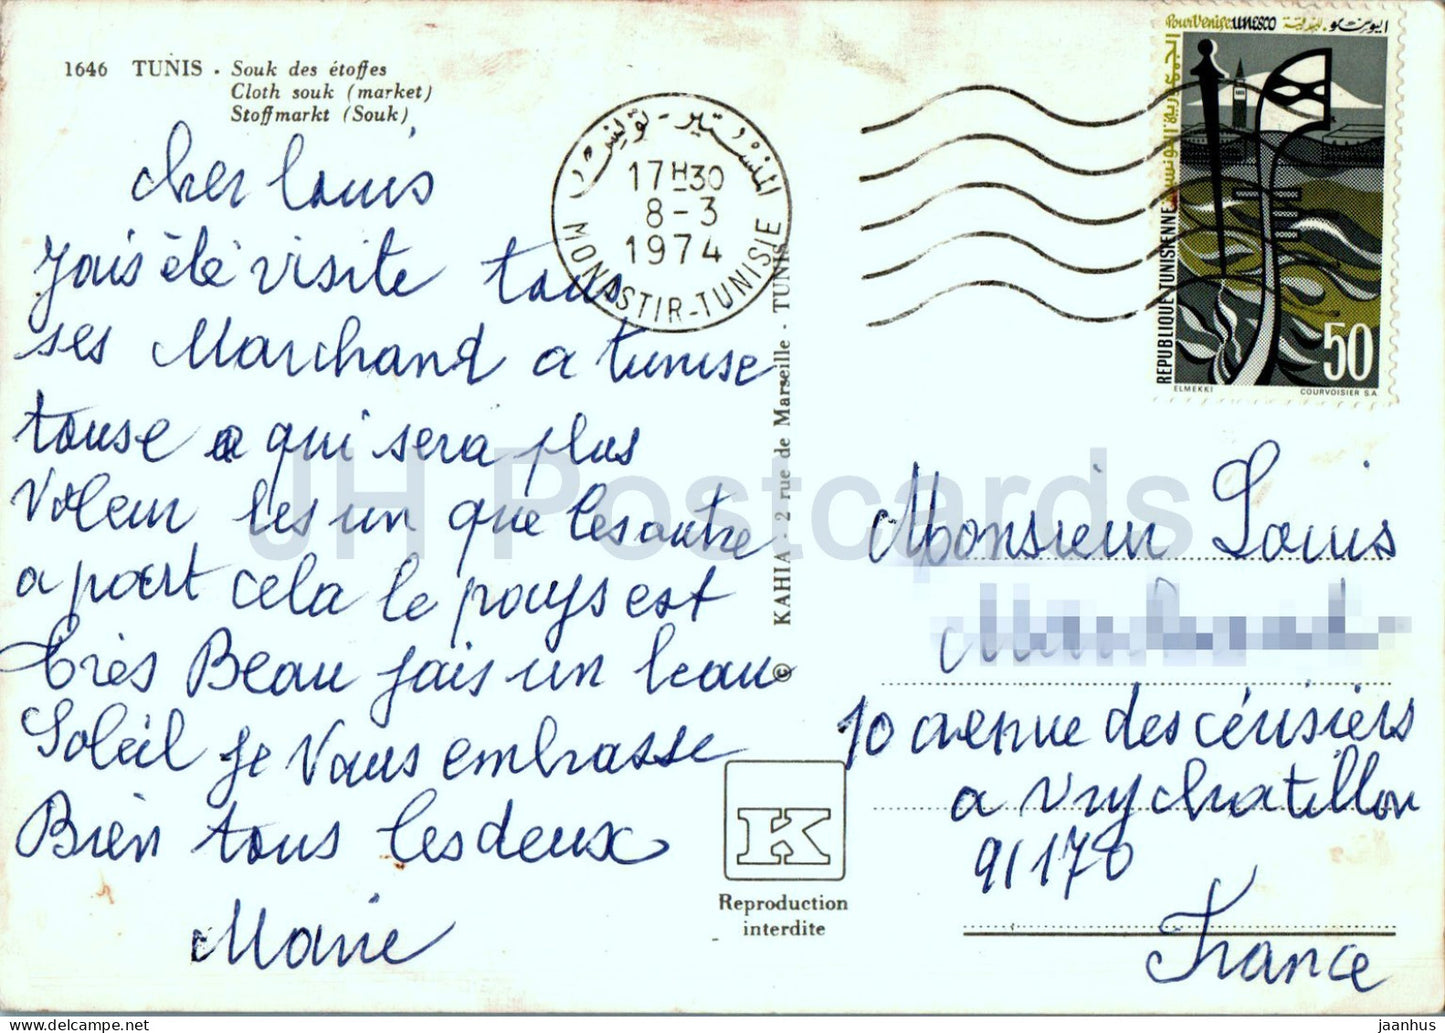 1646 TUNIS - Souk des étoffes
Cloth souk (market)
Stoffmarkt (Souk)
cher Louis
Jais été visite tous
ses Marchand a tunise
touse a qui sera plus
Voleur les un que les autre
a part cela le pays est
très Beau fais un beau
Soleil je Vous embrasse
Bien tous les deux
Marie
المنستير - تونس
17H30
8-3
1974
MONASTIR-TUNISIE
© KAHIA - 2 rue de Marseille - TUNIS
K
Reproduction
interdite
Pour Venise UNESCO
اليونسكو
الجمهورية التونسية
REPUBLIQUE TUNISIENNE
50
ELMEKKI
COURVOISIER S.A.
Monsieur Louis
10 avenue des cérisiers
a Viry chatillon
91170
France
JH Postcards
jaanhus © www.delcampe.net